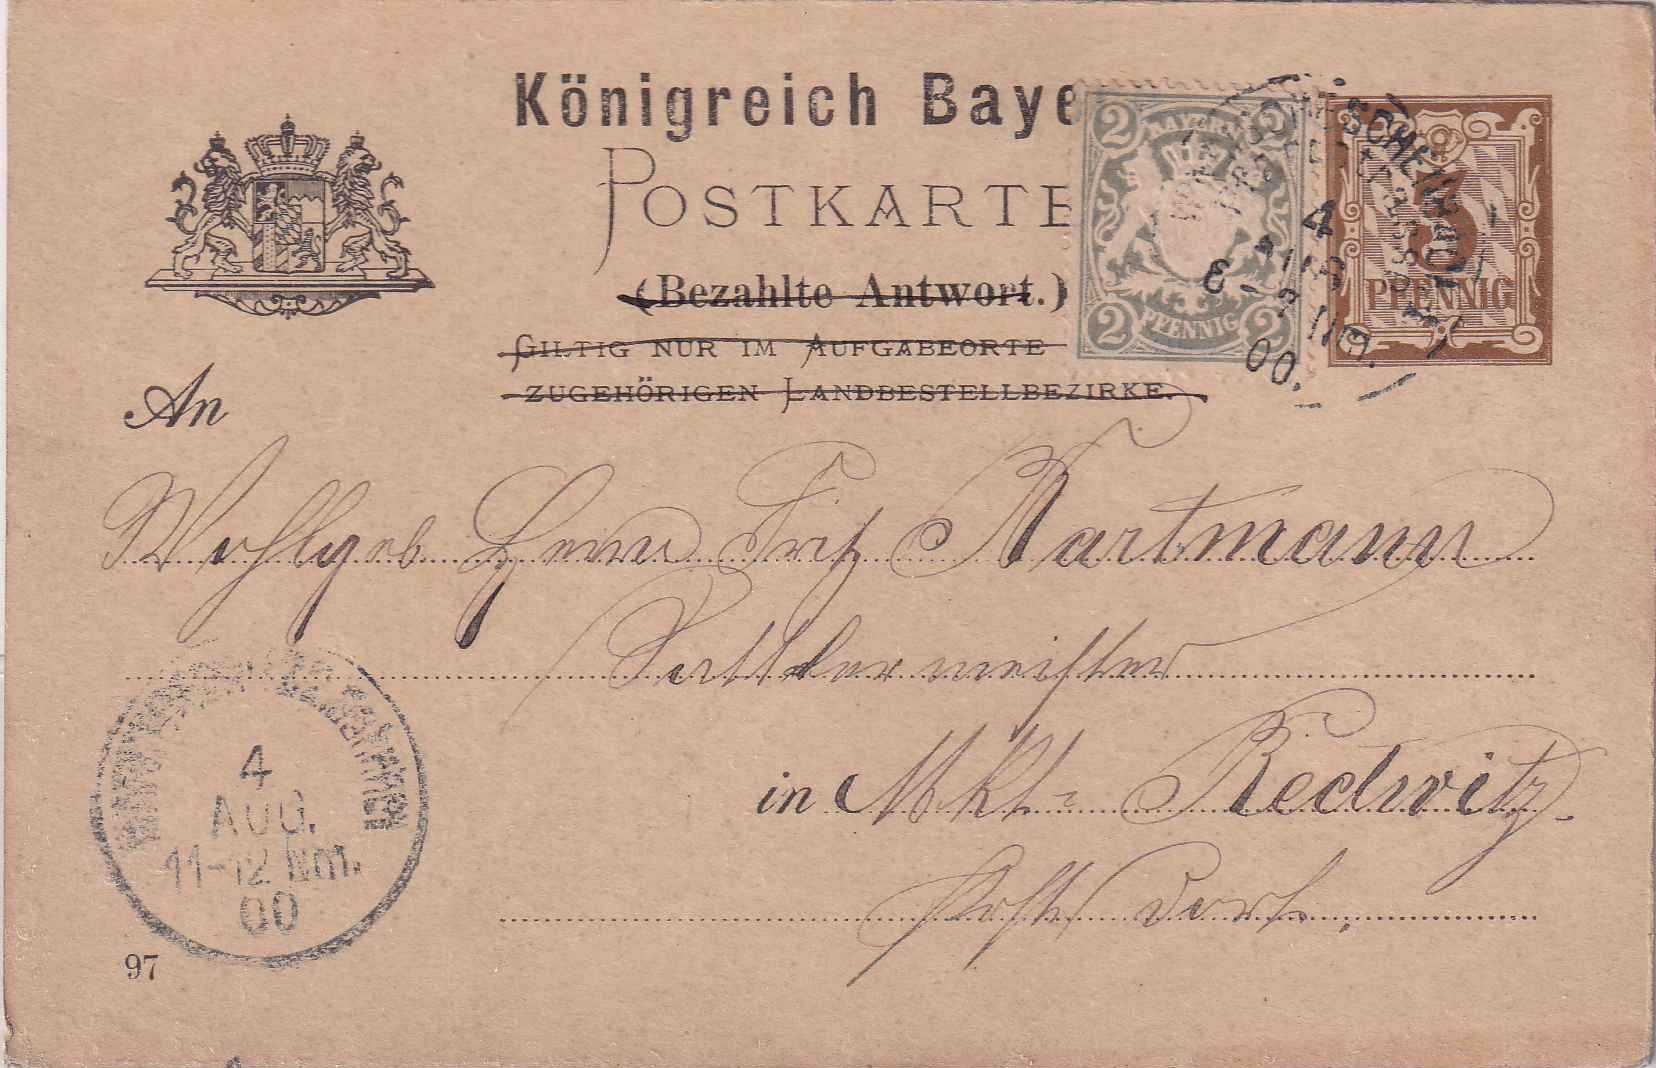 Königreich Baye
POSTKARTE
(Bezahlte Antwort.)
GILTIG NUR IM AUFGABEORTE
ZUGEHÖRIGEN LANDBESTELLBEZIRKE.
2 BAYERN 2
2 PFENNIG 2
3
PFENNIG
4
AUG
00.
An
Wohlgeb Herrn Fritz Hartmann
Sattlermeister
in Mkt. Redwitz.
Post dort.
4
AUG.
11-12 Nm.
00
97